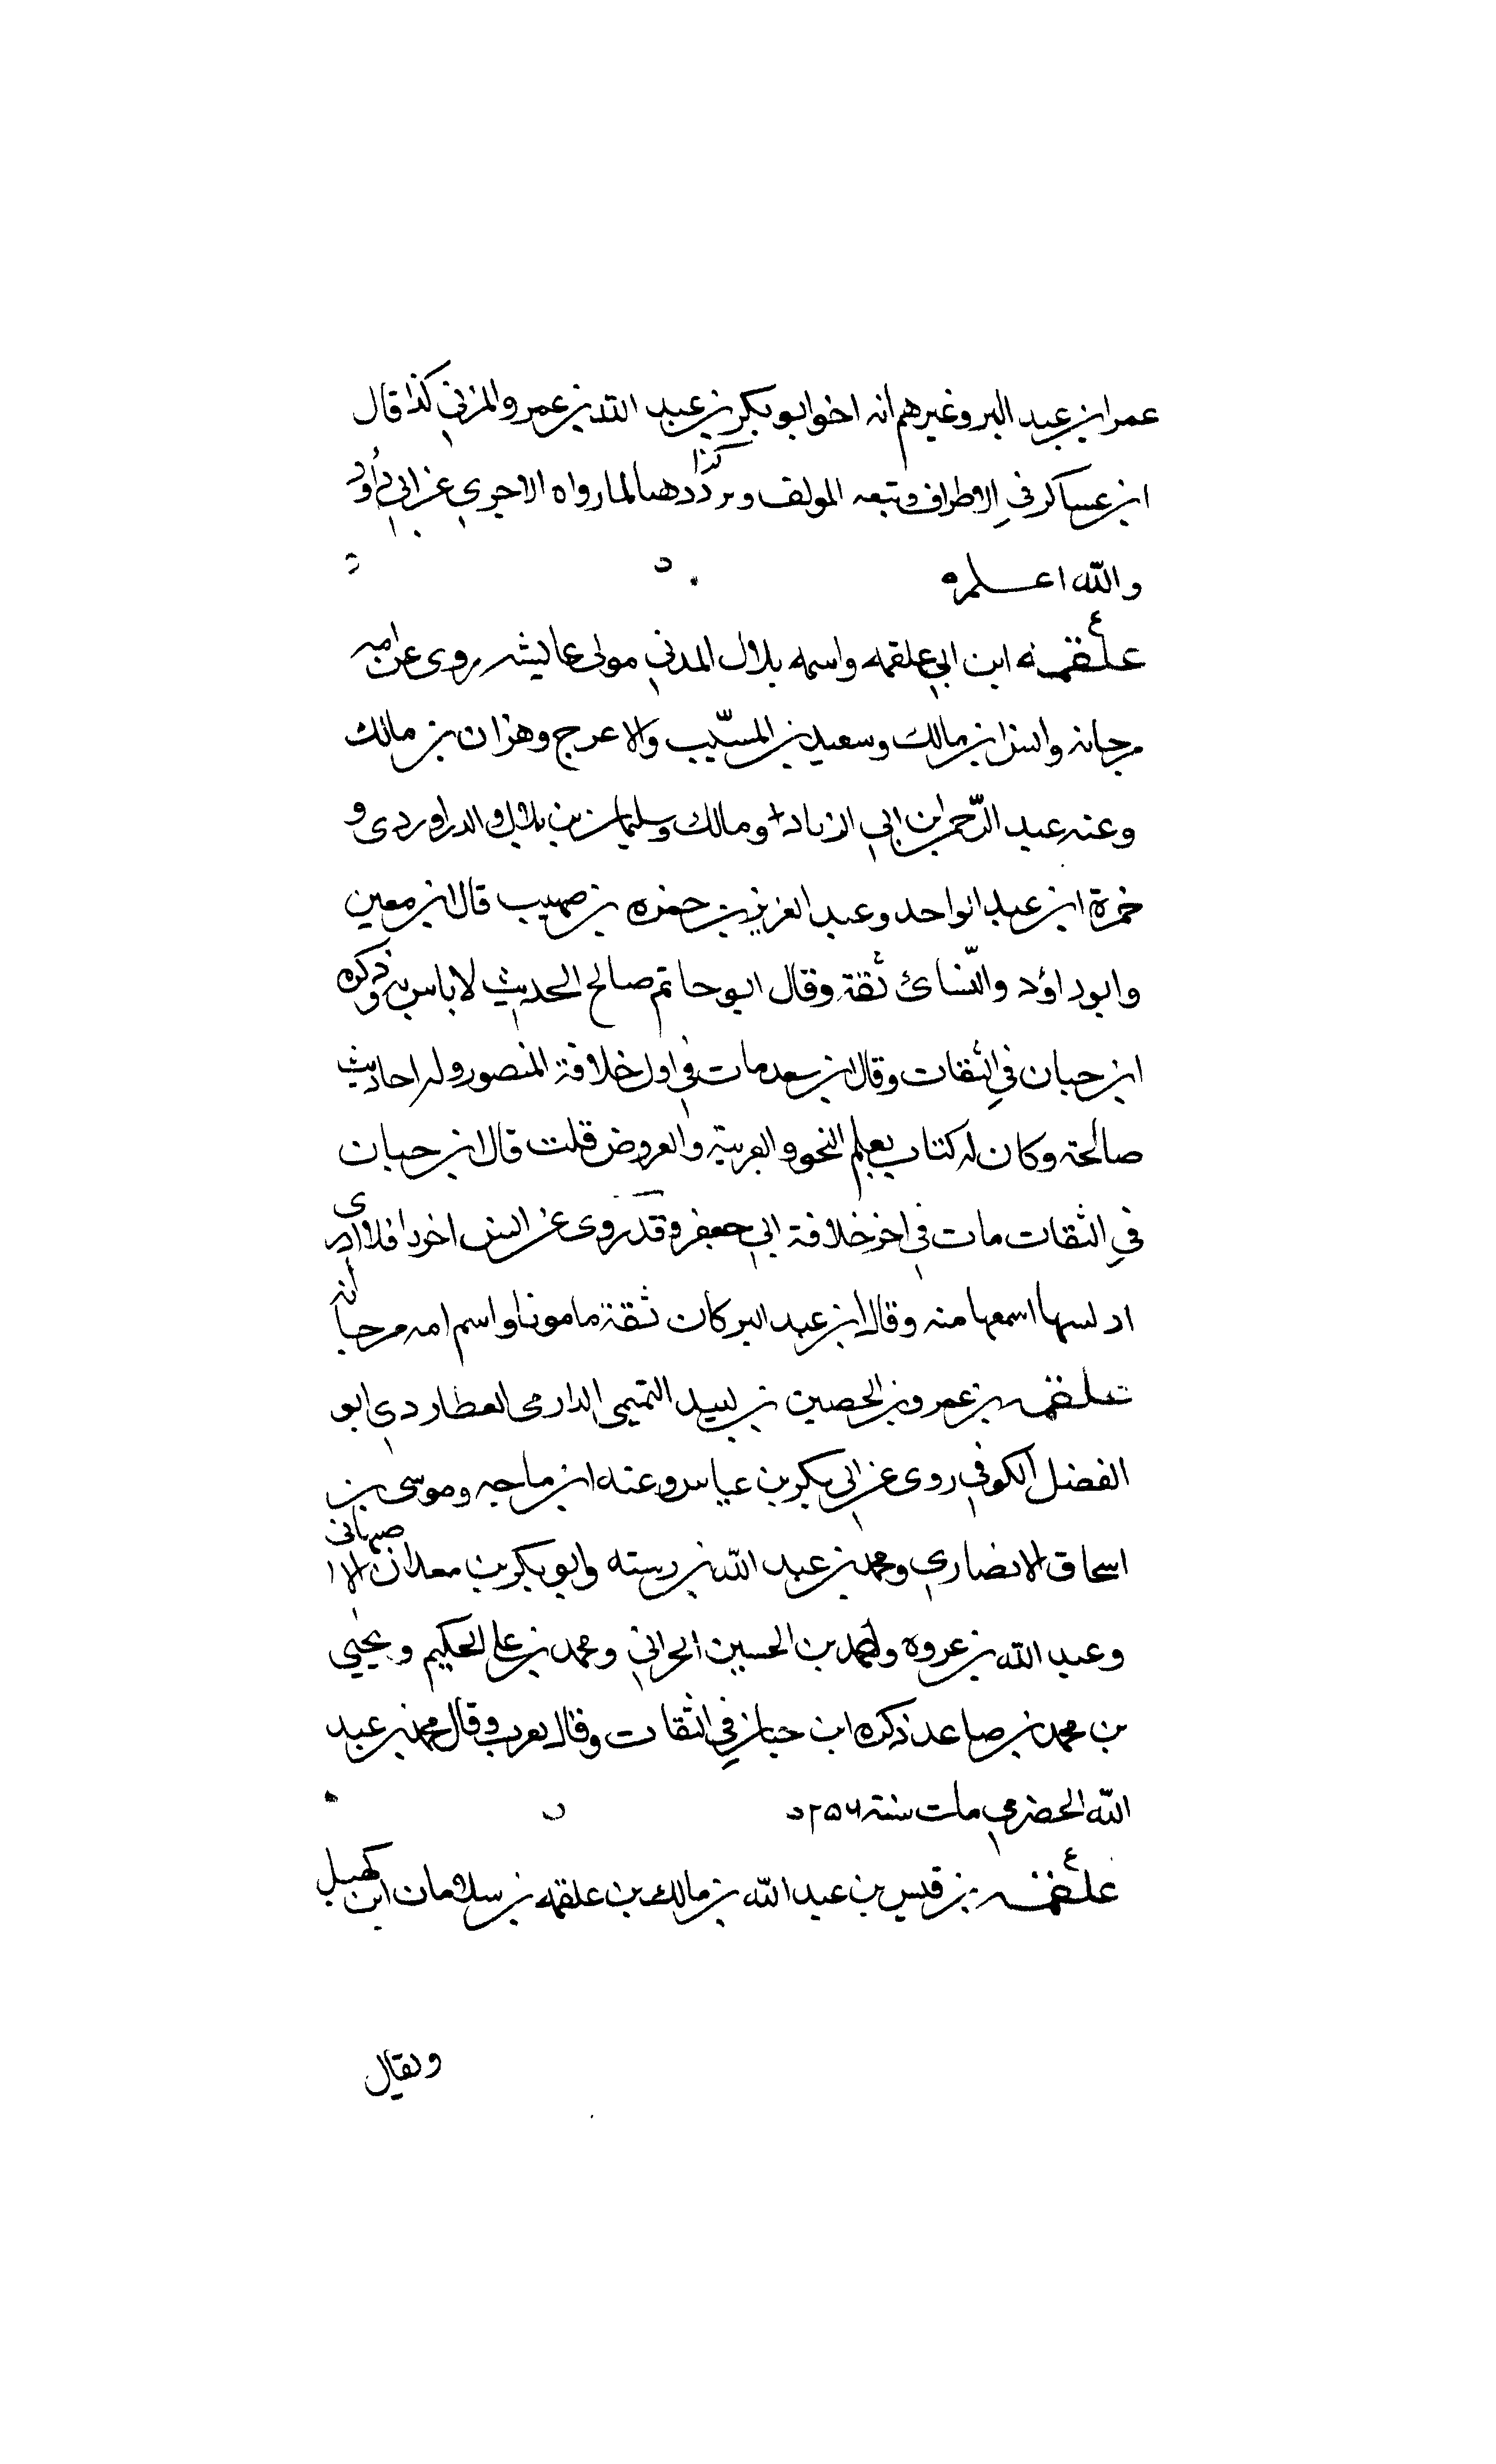 عمر ابن عبد البر وغيرهم انه اخو ابو بكر بن عبد الله بن عمرو المزني كذا قال
ابن عساكر في الاطراف وتبعه المولف وتردد كذا هما لما رواه الاجري عن ابي داود
والله اعلم ه
علقمه ابن ابي علقمه واسمه بلال المدني مولى عايشه روى عن امه
مرجانه وانس ابن مالك وسعيد بن المسيّب والاعرج وهزان بن مالك
وعنه عبد الرّحمن ابن ابي الزناد ومالك وسليمان بن بلال والدراوردى و
حمزة ابن عبد الواحد وعبد العزيز بن حمزه بن صهيب قال ابن معين
وابو داؤد والنّسائ ثقة وقال ابو حاتم صالح الحديث لا باس به وذكره
ابن حبان في الثقات وقال ابن سعد مات في اول خلافة المنصور وله احاديث
صالحة وكان له كتاب يعلم النحو والعربية والعروض قلت قال ابن حبان
في الثقات مات في اخر خلافة ابي جعفر وقد روى عن انس اخودا فلا ادرى
ادلسها اسمعها منه وقال ابن عبد البر كان ثقة مامونا واسم امه مرجانه
علقمه بن عمرو بن الحصين بن لبيد التميمى الدارمى العطاردي ابو
الفضل الكوفي روى عن ابي بكر بن عياس وعنه ابن ماجه وموسى بن
اسحاق الانصاري ومحمد بن عبد الله بن رسته وابو بكر بن معدان الاصبهانى
وعبد الله بن عروه واحمد بن الحسين الحراني ومحمد بن على الحكيم ويحيي
بن محمد بن صاعد ذكره ابن حبان في الثقات وقال يغرب وقال محمد بن عبد
الله الحضرمي مات سنة ٢٥٦
علقمه بن قيس بن عبد الله بن مالك بن علقمه بن سلامان ابن كهيل
ويقال